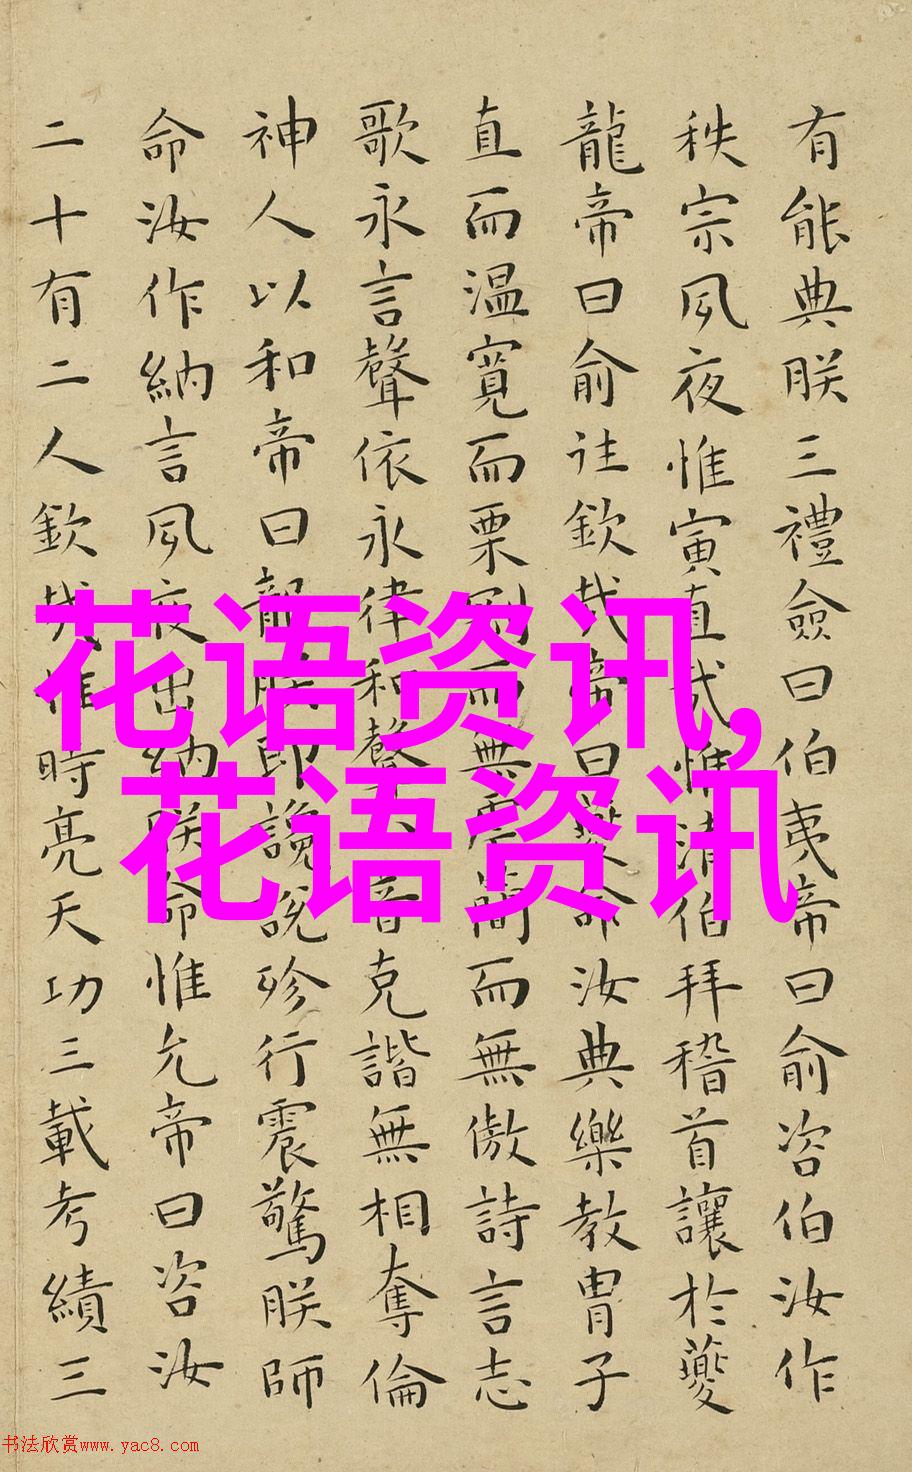 有能典朕三禮僉曰伯夷帝曰俞咨伯汝作
秩宗夙夜惟寅直哉惟清伯拜稽首讓於夔
龍帝曰俞往欽哉帝曰夔命汝典樂教冑子
直而温寬而栗剛而無虐簡而無傲詩言志
歌永言聲依永律和聲八音克諧無相奪倫
神人以和帝曰龍朕讒說殄行震驚朕師
命汝作納言夙夜出納朕命惟允帝曰咨汝
二十有二人欽哉惟時亮天功三載考績三
花语资讯,
花语资讯
书法欣赏www.yac8.com